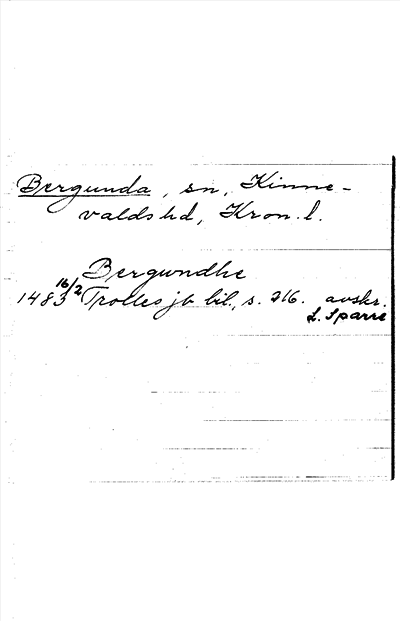 Bergunda, sn, Kinne-
valds hd, Kron. l.
Bergundhe
1483 16/2 Trolles jb bil., s. 316. avskr.
L. Sparre